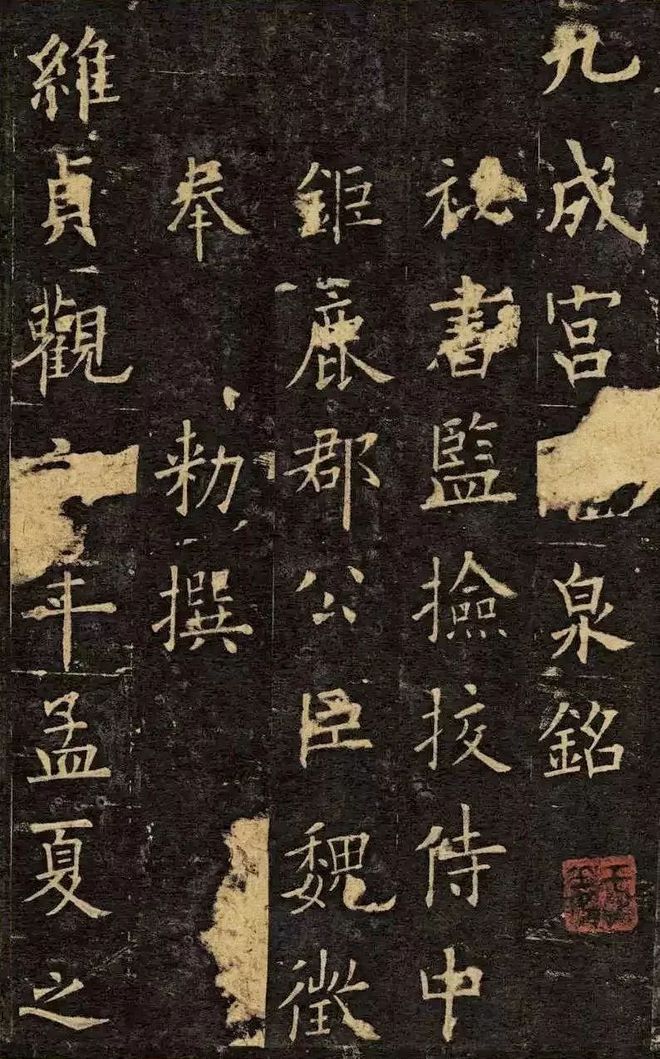 九成宮泉銘
祕書監撿挍侍中
鉅鹿郡公臣魏徵
奉 勑撰
維貞觀六年孟夏之